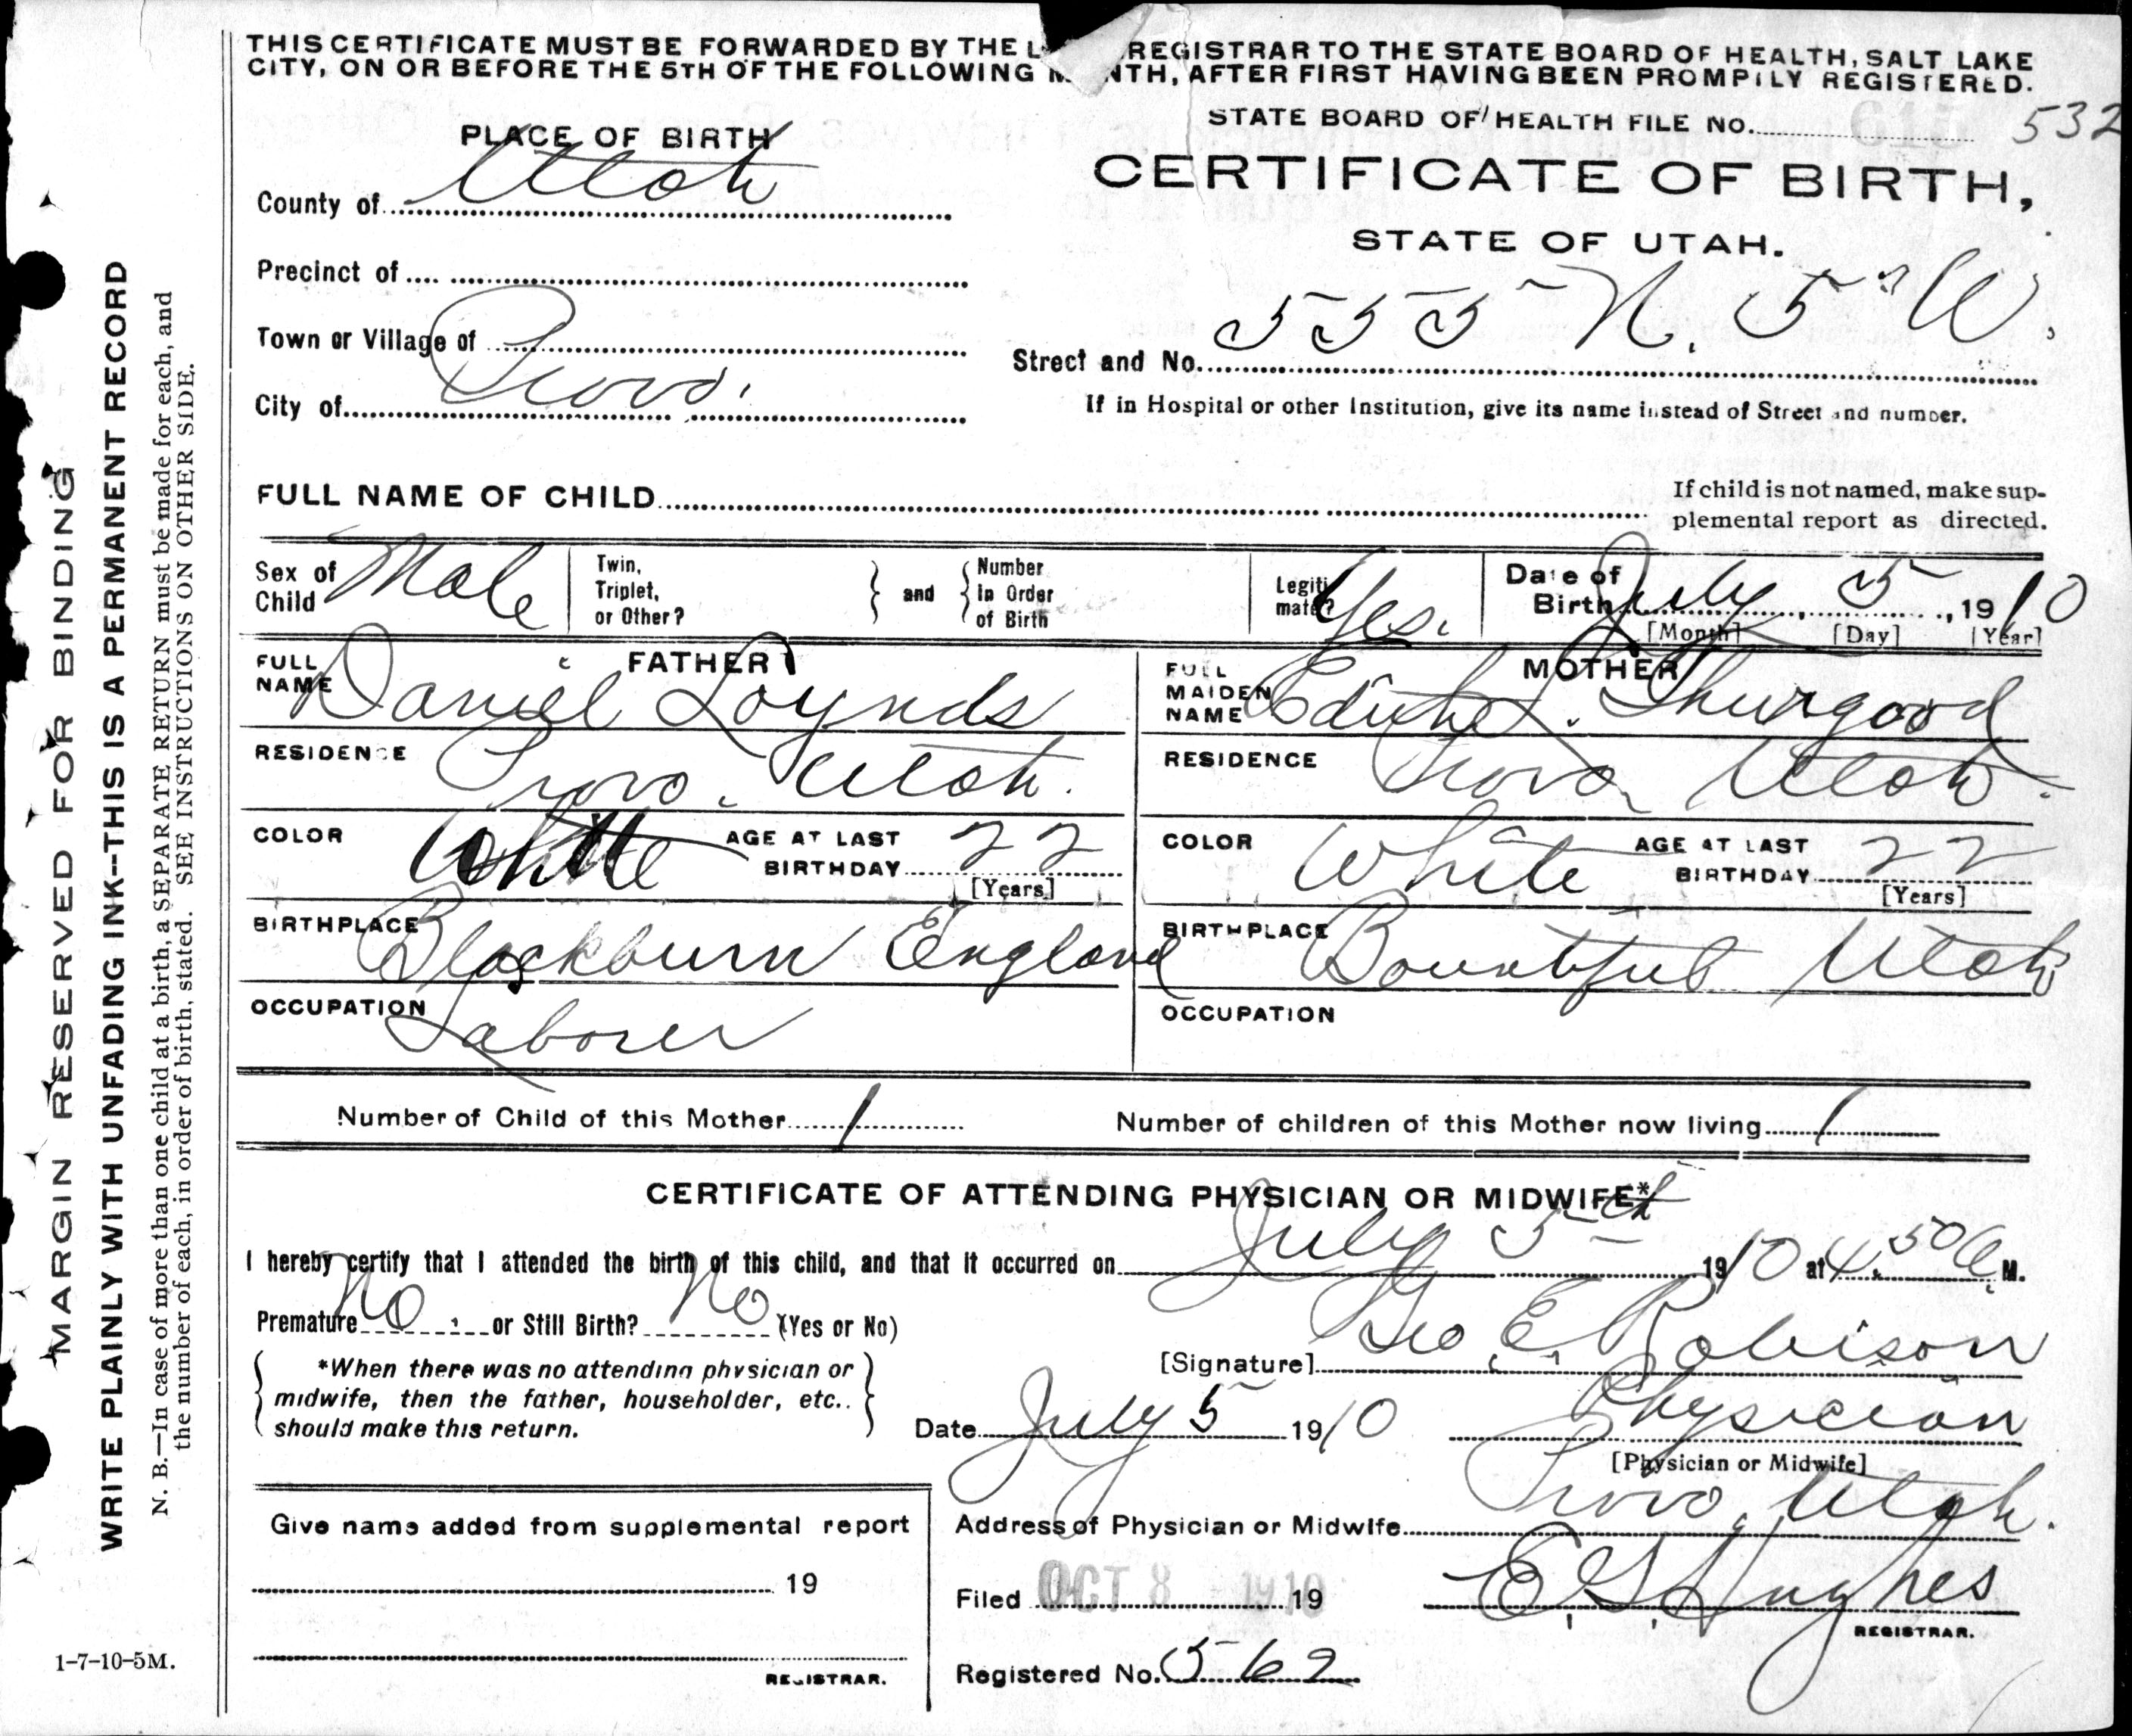 THIS CERTIFICATE MUST BE FORWARDED BY THE L REGISTRAR TO THE STATE BOARD OF HEALTH, SALT LAKE
CITY, ON OR BEFORE THE 5TH OF THE FOLLOWING M NTH, AFTER FIRST HAVING BEEN PROMPTLY REGISTERED.
STATE BOARD OF HEALTH FILE NO. 532
PLACE OF BIRTH
CERTIFICATE OF BIRTH,
STATE OF UTAH.
County of Utah
Precinct of
Town or Village of
City of Provo.
Street and No. 555 N. 5" W.
If in Hospital or other Institution, give its name instead of Street and number.
FULL NAME OF CHILD
If child is not named, make sup-
plemental report as directed.
Sex of Child Male
Twin, Triplet, or Other? and Number In Order of Birth
Legiti mate? Yes.
Date of Birth July 5, 1910
[Month] [Day] [Year]
FATHER
FULL NAME Daniel Loynds
RESIDENCE Provo, Utah.
COLOR White AGE AT LAST BIRTHDAY 22
[Years]
BIRTHPLACE Blackburn England
OCCUPATION Laborer
MOTHER
FULL MAIDEN NAME Edith L. Thurgood
RESIDENCE Provo Utah.
COLOR White AGE AT LAST BIRTHDAY 22
[Years]
BIRTHPLACE Bountiful Utah
OCCUPATION
Number of Child of this Mother 1 Number of children of this Mother now living 1
CERTIFICATE OF ATTENDING PHYSICIAN OR MIDWIFE*
I hereby certify that I attended the birth of this child, and that it occurred on July 5th 1910 at 4.50 A. M.
Premature No or Still Birth? No (Yes or No)
*When there was no attending physician or
midwife, then the father, householder, etc..
should make this return.
[Signature] Geo. E. Robison
Date July 5 1910 Physician
[Physician or Midwife]
Address of Physician or Midwife Provo, Utah.
Give name added from supplemental report
19
REGISTRAR.
Filed OCT 8 1910 19 E. G. Hughes
REGISTRAR.
Registered No. 562
MARGIN RESERVED FOR BINDING
WRITE PLAINLY WITH UNFADING INK--THIS IS A PERMANENT RECORD
N. B.—In case of more than one child at a birth, a SEPARATE RETURN must be made for each, and
the number of each, in order of birth, stated. SEE INSTRUCTIONS ON OTHER SIDE.
1-7-10-5M.